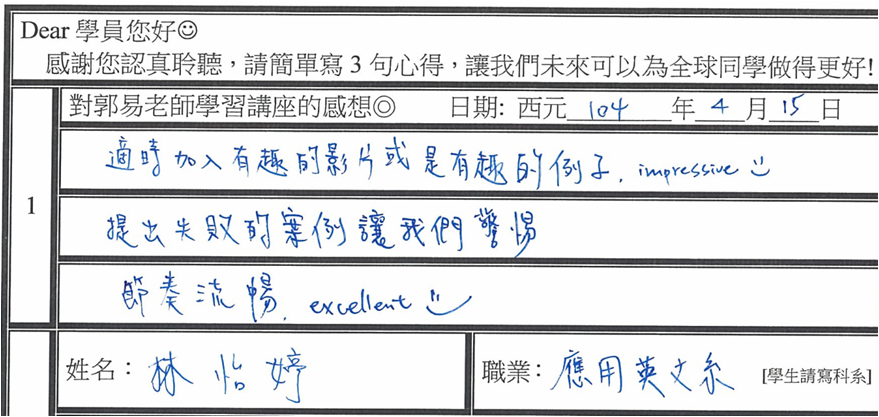 Dear 學員您好☺
感謝您認真聆聽，請簡單寫 3 句心得，讓我們未來可以為全球同學做得更好!
1
對郭易老師學習講座的感想◎ 日期: 西元 104 年 4 月 15 日
適時加入有趣的影片或是有趣的例子, impressive ☺
提出失敗的案例讓我們警惕
節奏流暢, excellent ☺
姓名： 林怡婷 職業： 應用英文系 [學生請寫科系]